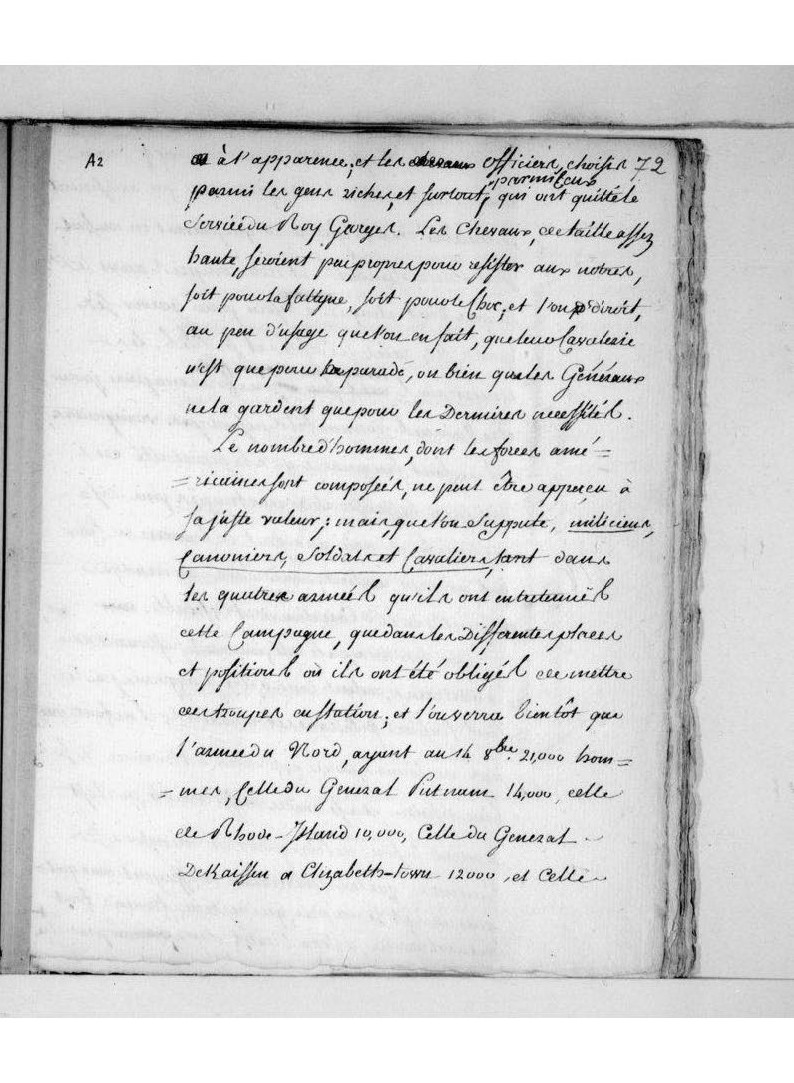 A2
à l'apparence; et les officiers, choisis 72
parmi ceux
parmi les gens riches, et surtout, qui ont quitté le
Service du Roy Georges. Les Chevaux, de taille assez
haute, seroient peu propres pour resister aux notres,
soit pour la fatigue, soit pour le Choc; et l'on diroit,
au peu d'usage que l'on en fait, que leur Cavalerie
n'est que pour la parade, ou bien que les Généraux
ne la gardent que pour les Dernieres necessités.
Le nombre d'hommes, dont les forces amé=
=ricaines sont composées, ne peut être apperçu à
sa juste valeur; mais, que l'on suppute, miliciens,
Canoniers, Soldats et Cavaliers, tant dans
les quatres armées qu'ils ont entretenuës
cette Campagne, que dans les Differentes places
et positions où ils ont été obligés de mettre
des troupes en station; et l'on verra bientôt que
l'armée du Nord, ayant au 14 8bre. 21,000 hom=
=mes, Celle du General Putnam 14,000, celle
de Rhode-Island 10,000, Celle du General
DeKaissen a Elizabeth-town 12000, et Celle